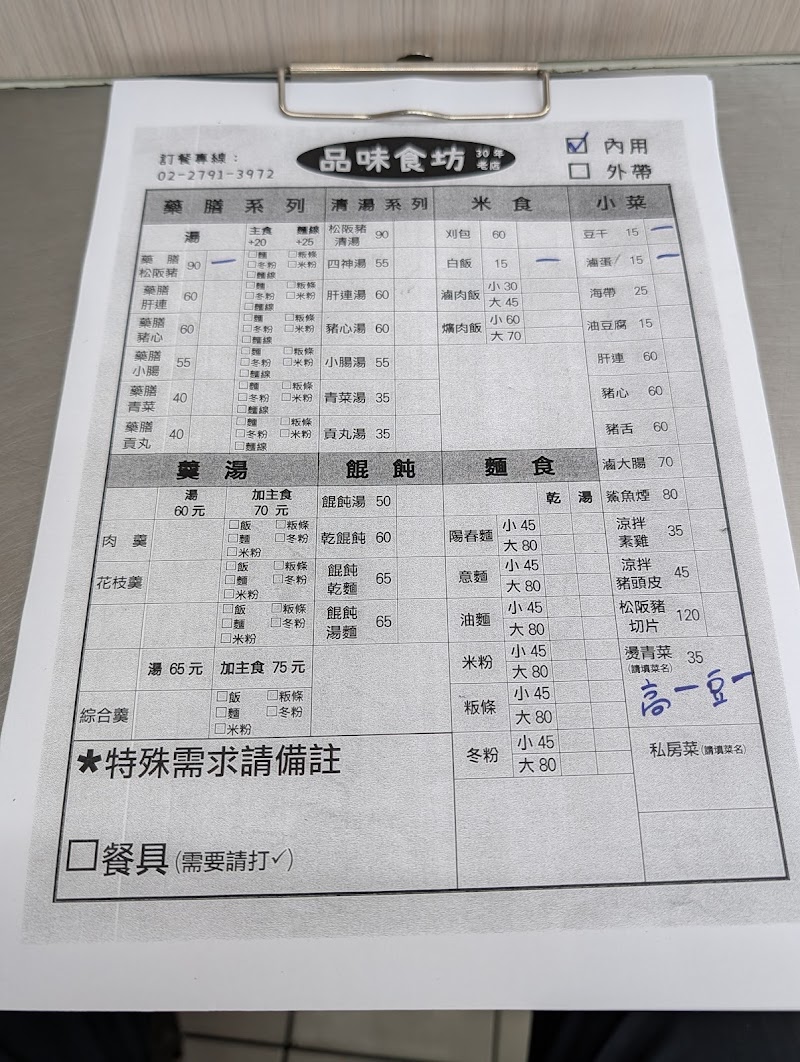 訂餐專線：
02-2791-3972
品味食坊 30年老店
☑ 內用
☐ 外帶
藥膳系列 清湯系列 米食 小菜
湯 主食+20 麵線+25
藥膳松阪豬 90 一 ☐麵 ☐粄條 ☐冬粉 ☐米粉 ☐麵線
藥膳肝連 60 ☐麵 ☐粄條 ☐冬粉 ☐米粉 ☐麵線
藥膳豬心 60 ☐麵 ☐粄條 ☐冬粉 ☐米粉 ☐麵線
藥膳小腸 55 ☐麵 ☐粄條 ☐冬粉 ☐米粉 ☐麵線
藥膳青菜 40 ☐麵 ☐粄條 ☐冬粉 ☐米粉 ☐麵線
藥膳貢丸 40 ☐麵 ☐粄條 ☐冬粉 ☐米粉 ☐麵線
松阪豬清湯 90
四神湯 55
肝連湯 60
豬心湯 60
小腸湯 55
青菜湯 35
貢丸湯 35
刈包 60
白飯 15 一
滷肉飯 小 30 大 45
爌肉飯 小 60 大 70
豆干 15 一
滷蛋 15 一
海帶 25
油豆腐 15
肝連 60
豬心 60
豬舌 60
滷大腸 70
鯊魚煙 80
涼拌素雞 35
涼拌豬頭皮 45
松阪豬切片 120
燙青菜 (請填菜名) 35
高一豆一
私房菜(請填菜名)
羹湯 餛飩 麵食
湯 60元 加主食 70元
肉羹 ☐飯 ☐粄條 ☐麵 ☐冬粉 ☐米粉
花枝羹 ☐飯 ☐粄條 ☐麵 ☐冬粉 ☐米粉
☐飯 ☐粄條 ☐麵 ☐冬粉 ☐米粉
湯 65元 加主食 75元
綜合羹 ☐飯 ☐粄條 ☐麵 ☐冬粉 ☐米粉
餛飩湯 50
乾餛飩 60
餛飩乾麵 65
餛飩湯麵 65
乾 湯
陽春麵 小 45 大 80
意麵 小 45 大 80
油麵 小 45 大 80
米粉 小 45 大 80
粄條 小 45 大 80
冬粉 小 45 大 80
*特殊需求請備註
☐餐具(需要請打✓)